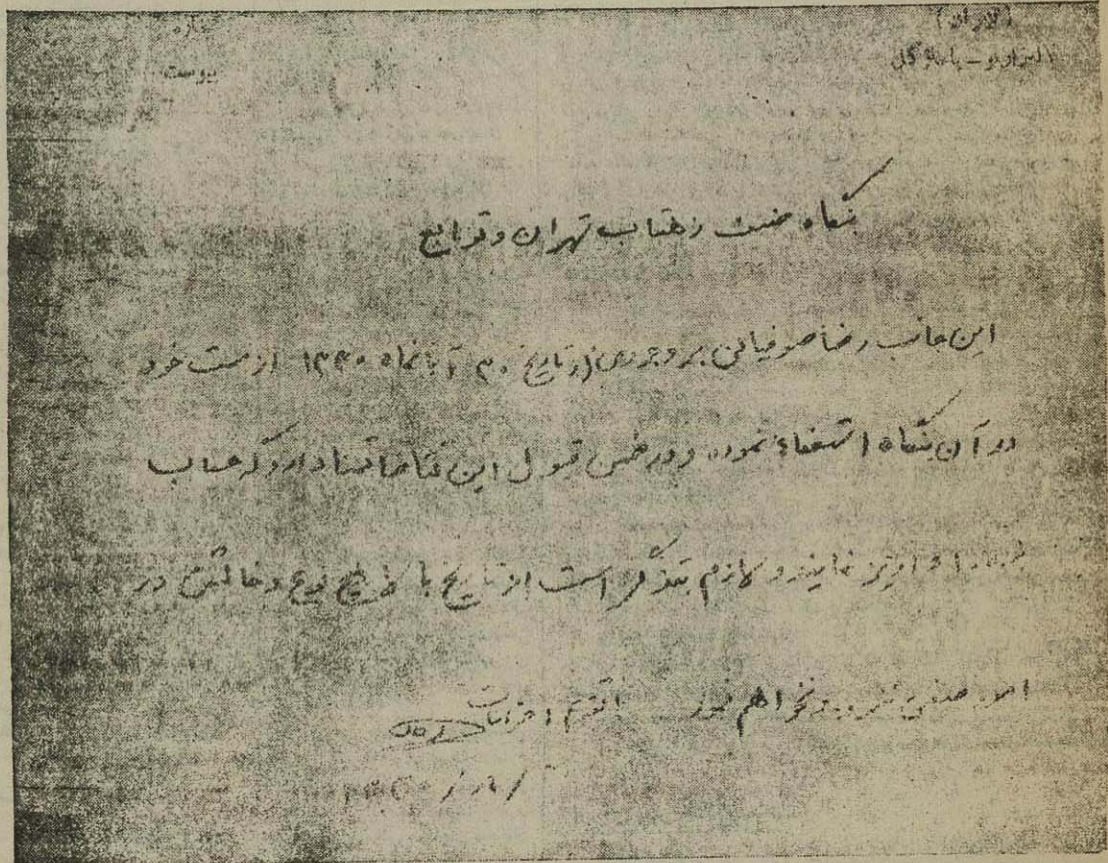 پیوست
بنگاه صنعت زهتاب تهران و توابع
این جانب رضا صوفیانی بروجردی از تاریخ ۳۰ آبانماه ۱۳۳۰ از سمت خود
در آن بنگاه استعفاء نموده و در ضمن قبول این تقاضا تمنا دارد که حساب
را واریز نمایند و لازم بتذکر است از تاریخ با هیچ نوع دخالتی در
امور صنفی ننموده و نخواهم نمود با تقدیم احترامات